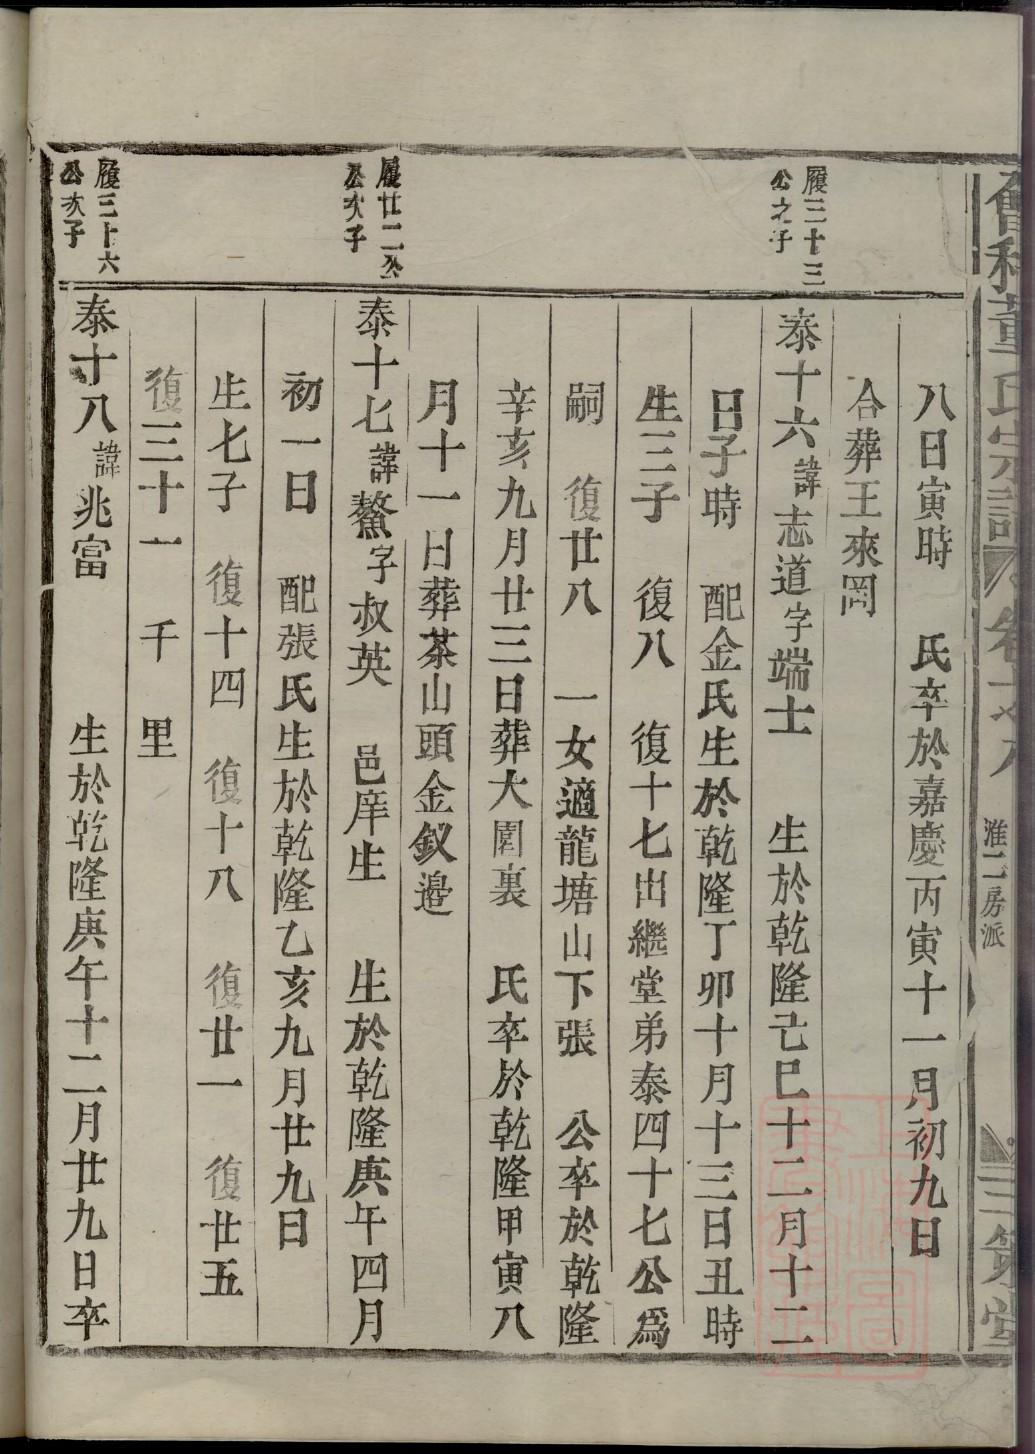 董氏宗譜
淮二房派
三策堂
八日寅時　氏卒於嘉慶丙寅十一月初九日
合葬王來岡
履三十三
公之子
泰十六諱志道字端士　生於乾隆己巳十二月十二
日子時　配金氏生於乾隆丁卯十月十三日丑時
生三子　復八　復十七出繼堂弟泰四十七公為
嗣　復廿八　一女適龍塘山下張　公卒於乾隆
辛亥九月廿三日葬大園裏　氏卒於乾隆甲寅八
月十一日葬茶山頭金釵邉
履廿二公
公次子
泰十七諱鰲字叔英　邑庠生　生於乾隆庚午四月
初一日　配張氏生於乾隆乙亥九月廿九日
生七子　復十四　復十八　復廿一　復廿五
復三十一　千　里
履三十六
公次子
泰十八諱兆富　生於乾隆庚午十二月廿九日卒